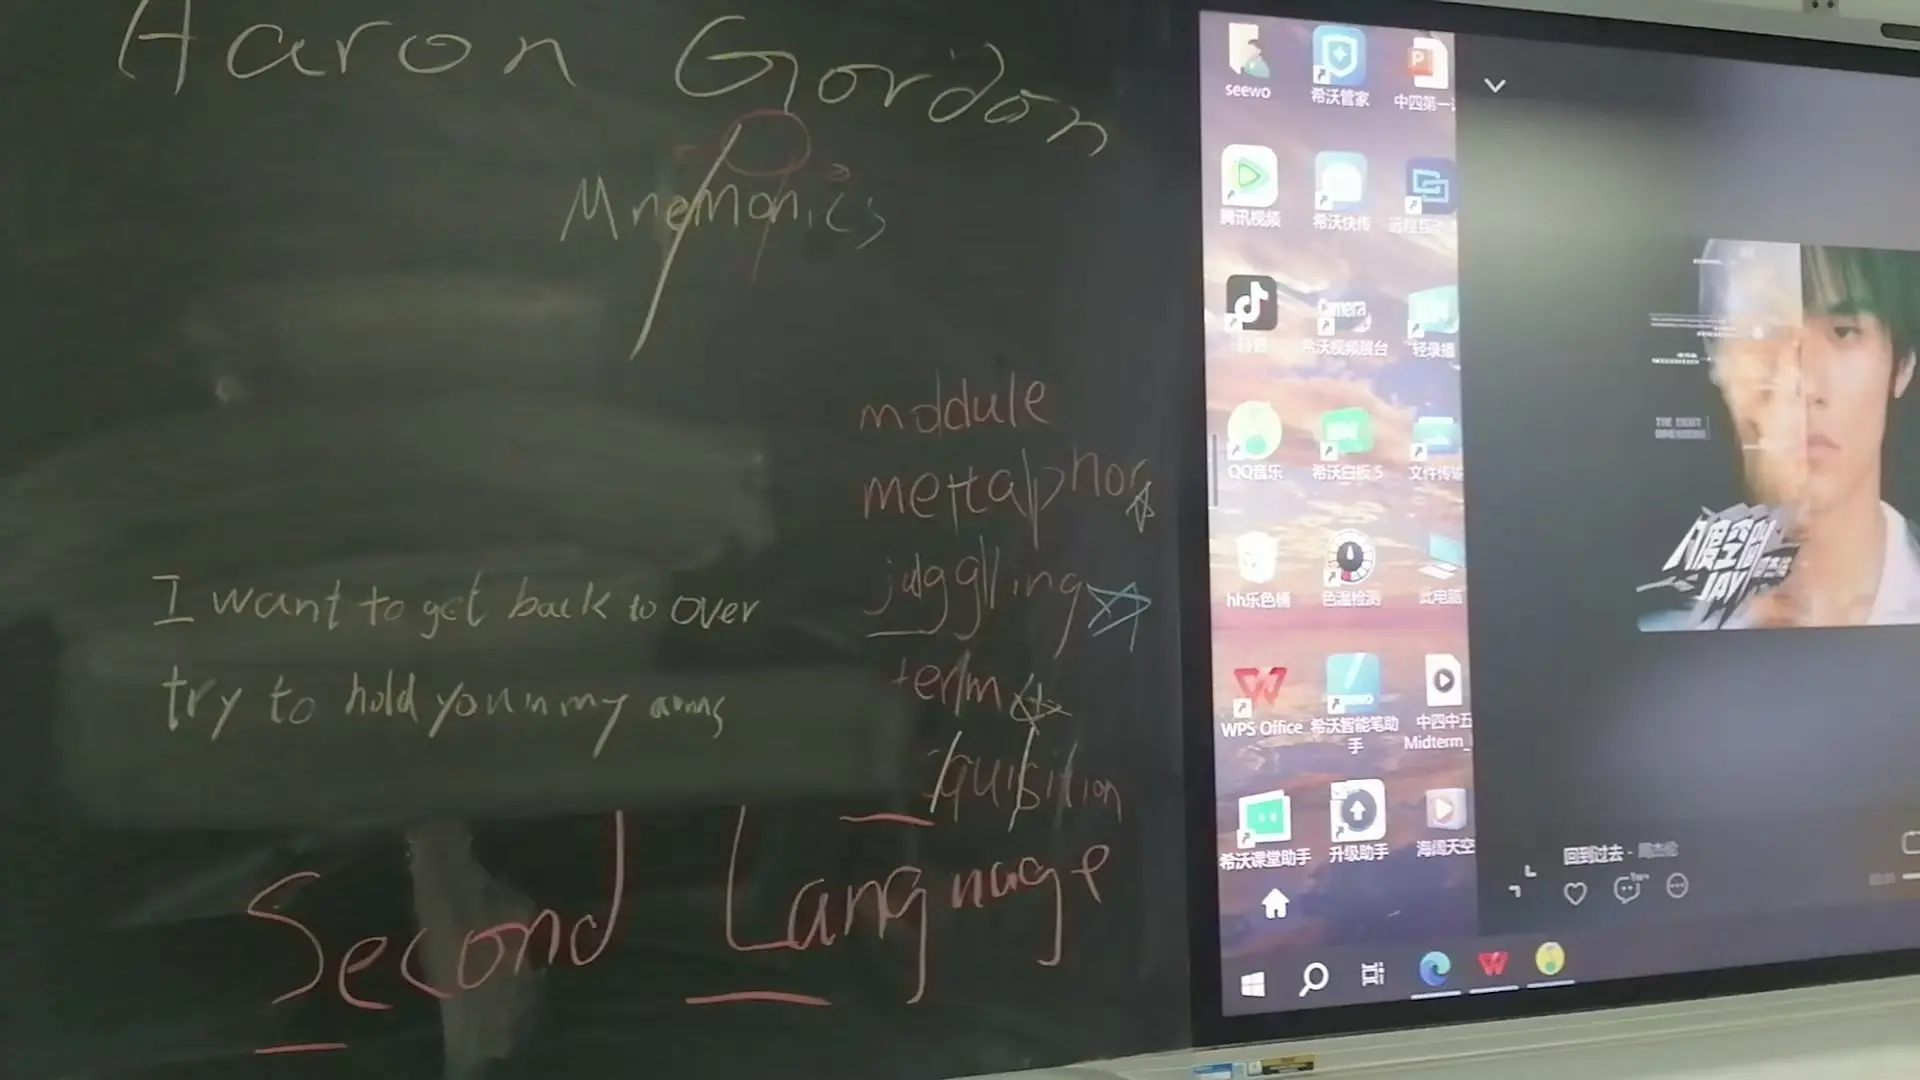 Aaron Gordon
Mnemonics
module
metaphor
juggling
term
quisition
I want to get back to over
try to hold you in my arms
Second Language
seewo
希沃管家
中四第一
腾讯视频
希沃快传
远程互动
抖音
Camera
希沃视频展台
轻录播
QQ音乐
希沃白板 5
文件传输
hh乐色桶
色温检测
此电脑
WPS Office
希沃智能笔助手
中四中五
Midterm_
希沃课堂助手
升级助手
海阔天空
THE EIGHT
DIMENSIONS
八度空间
JAY 周杰伦
回到过去 - 周杰伦